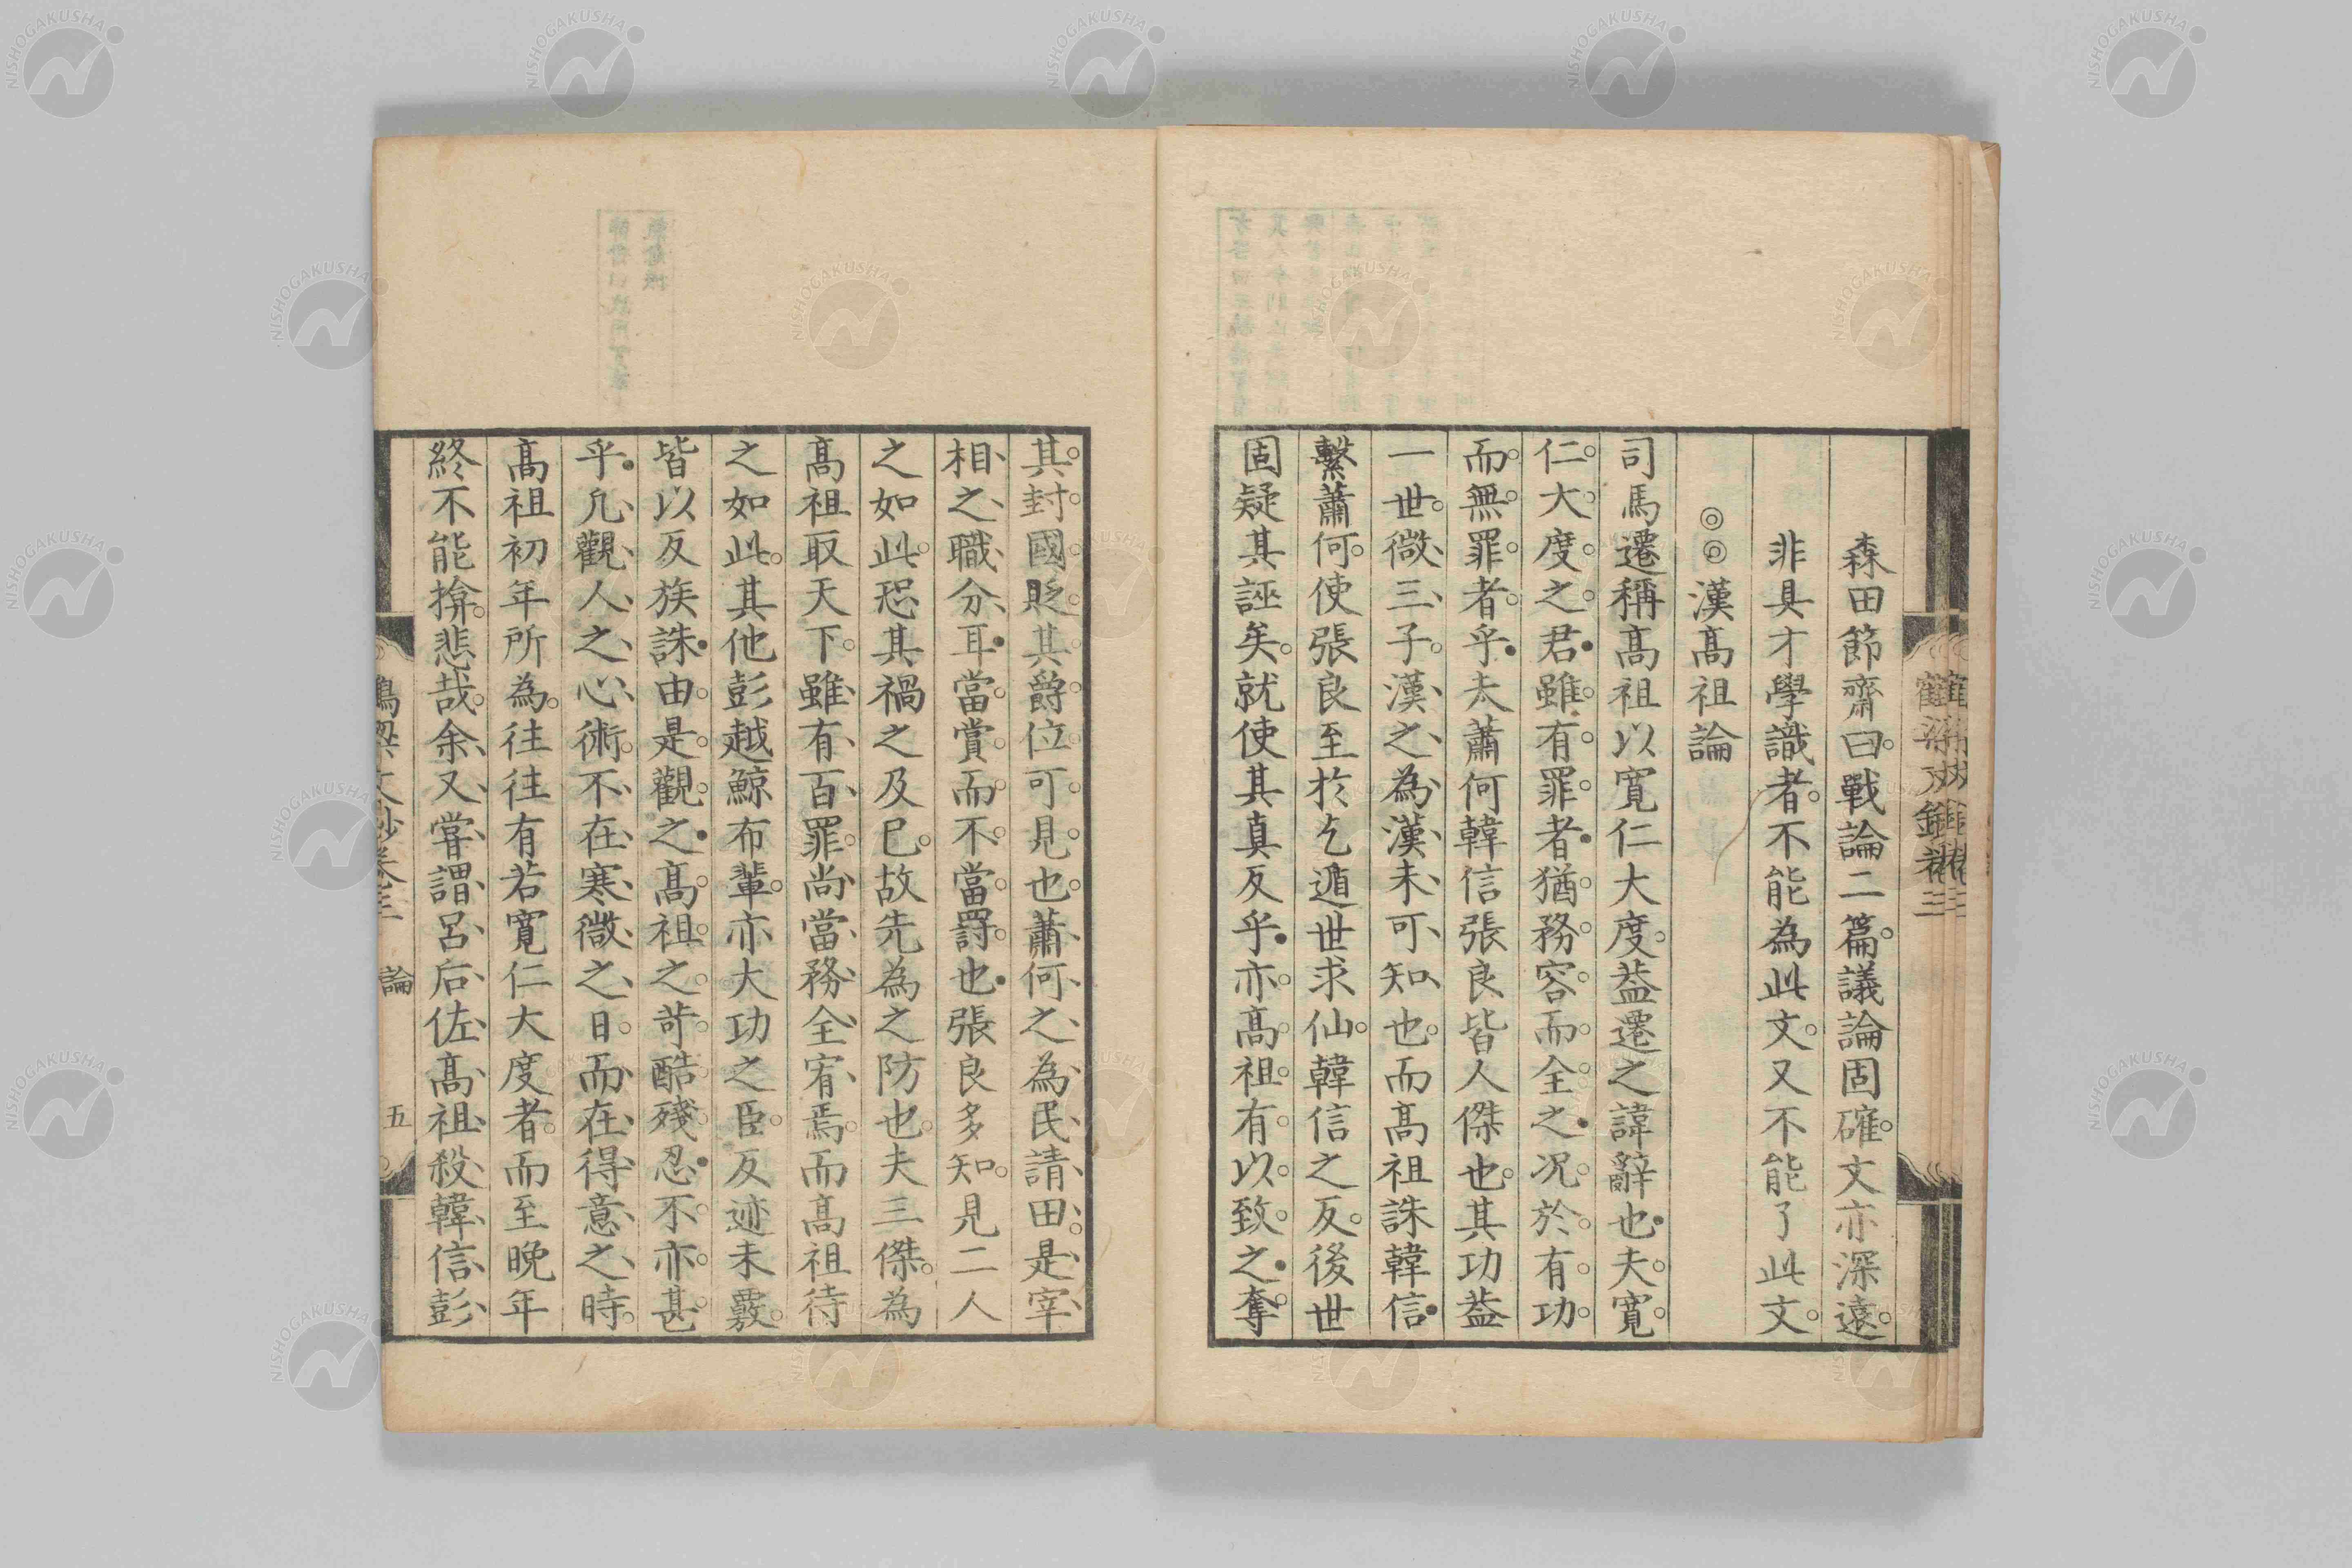 森田節齋曰戰論二篇議論固確文亦深遠
非具才學識者不能為此文又不能了此文
◎◎漢高祖論
司馬遷稱高祖以寛仁大度葢遷之諱辭也夫寛
仁大度之君雖有罪者猶務容而全之况於有功
而無罪者乎夫蕭何韓信張良皆人傑也其功葢
一世微三子漢之為漢未可知也而高祖誅韓信
繫蕭何使張良至於乞遁世求仙韓信之反後世
固疑其誣矣就使其真反乎亦高祖有以致之奪
其封國貶其爵位可見也蕭何之為民請田是宰
相之職分耳當賞而不當罸也張良多知見二人
之如此恐其禍之及已故先為之防也夫三傑為
高祖取天下雖有百罪尚當務全宥焉而高祖待
之如此其他彭越鯨布輩亦大功之臣反迹未覈
皆以反族誅由是觀之高祖之苛酷殘忍不亦甚
乎凡觀人之心術不在寒微之日而在得意之時
高祖初年所為往往有若寛仁大度者而至晚年
終不能揜悲哉余又嘗謂呂后佐高祖殺韓信彭
論 五
NISHOGAKUSHA